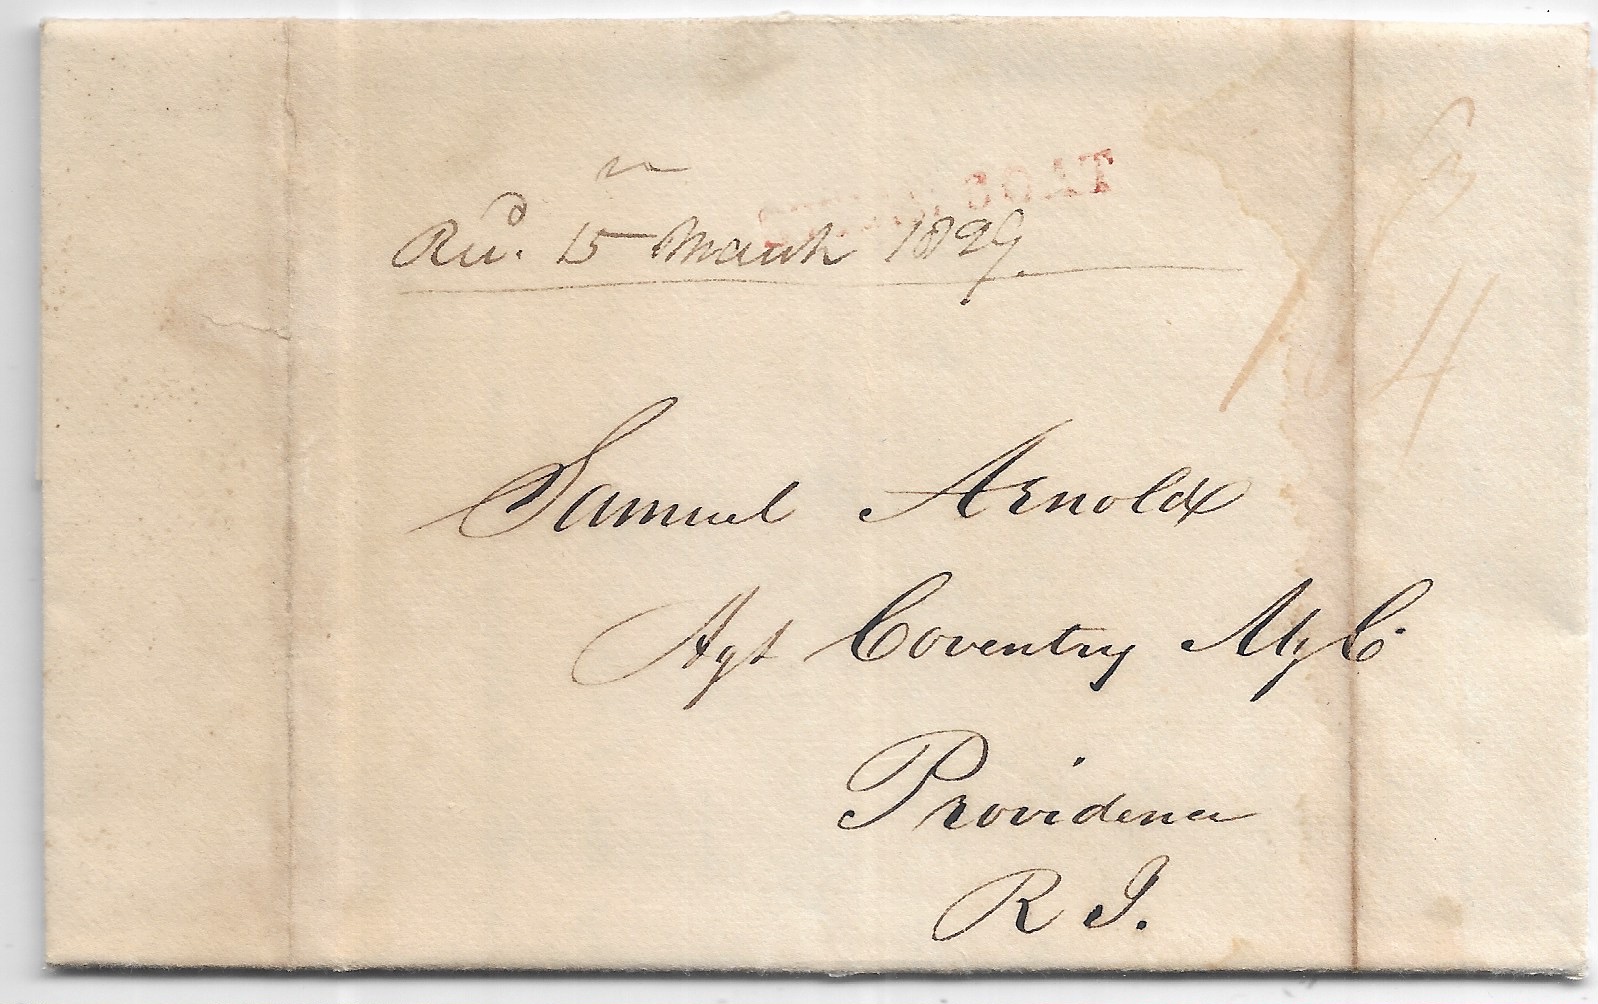 Recd. 15 March 1829
Samuel Arnold
Agt Coventry Mg Co.
Providence
R I.